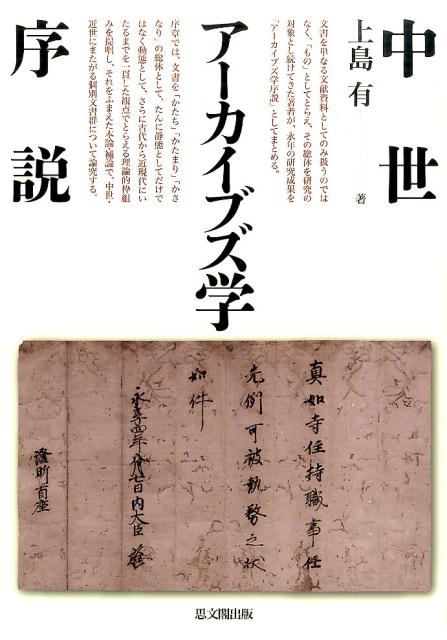 中世
アーカイブズ学
序説
上島 有 著
文書を単なる文献資料としてのみ扱うのでは
なく、「もの」としてとらえ、その総体を研究の
対象とし続けてきた著者が、永年の研究成果を
「アーカイブズ学序説」としてまとめる。
序章では、文書を「かたち」「かたまり」「かさ
なり」の総体として、たんに静態としてだけで
はなく動態として、さらに古代から近現代にい
たるまでを一貫した観点でとらえる理論的枠組
みを提唱し、それをふまえた本論・補論で、中世・
近世にまたがる個別文書群について論究する。
真如寺住持職事任
先例可被執務之状
如件
永享四年 日内大臣
首座
思文閣出版